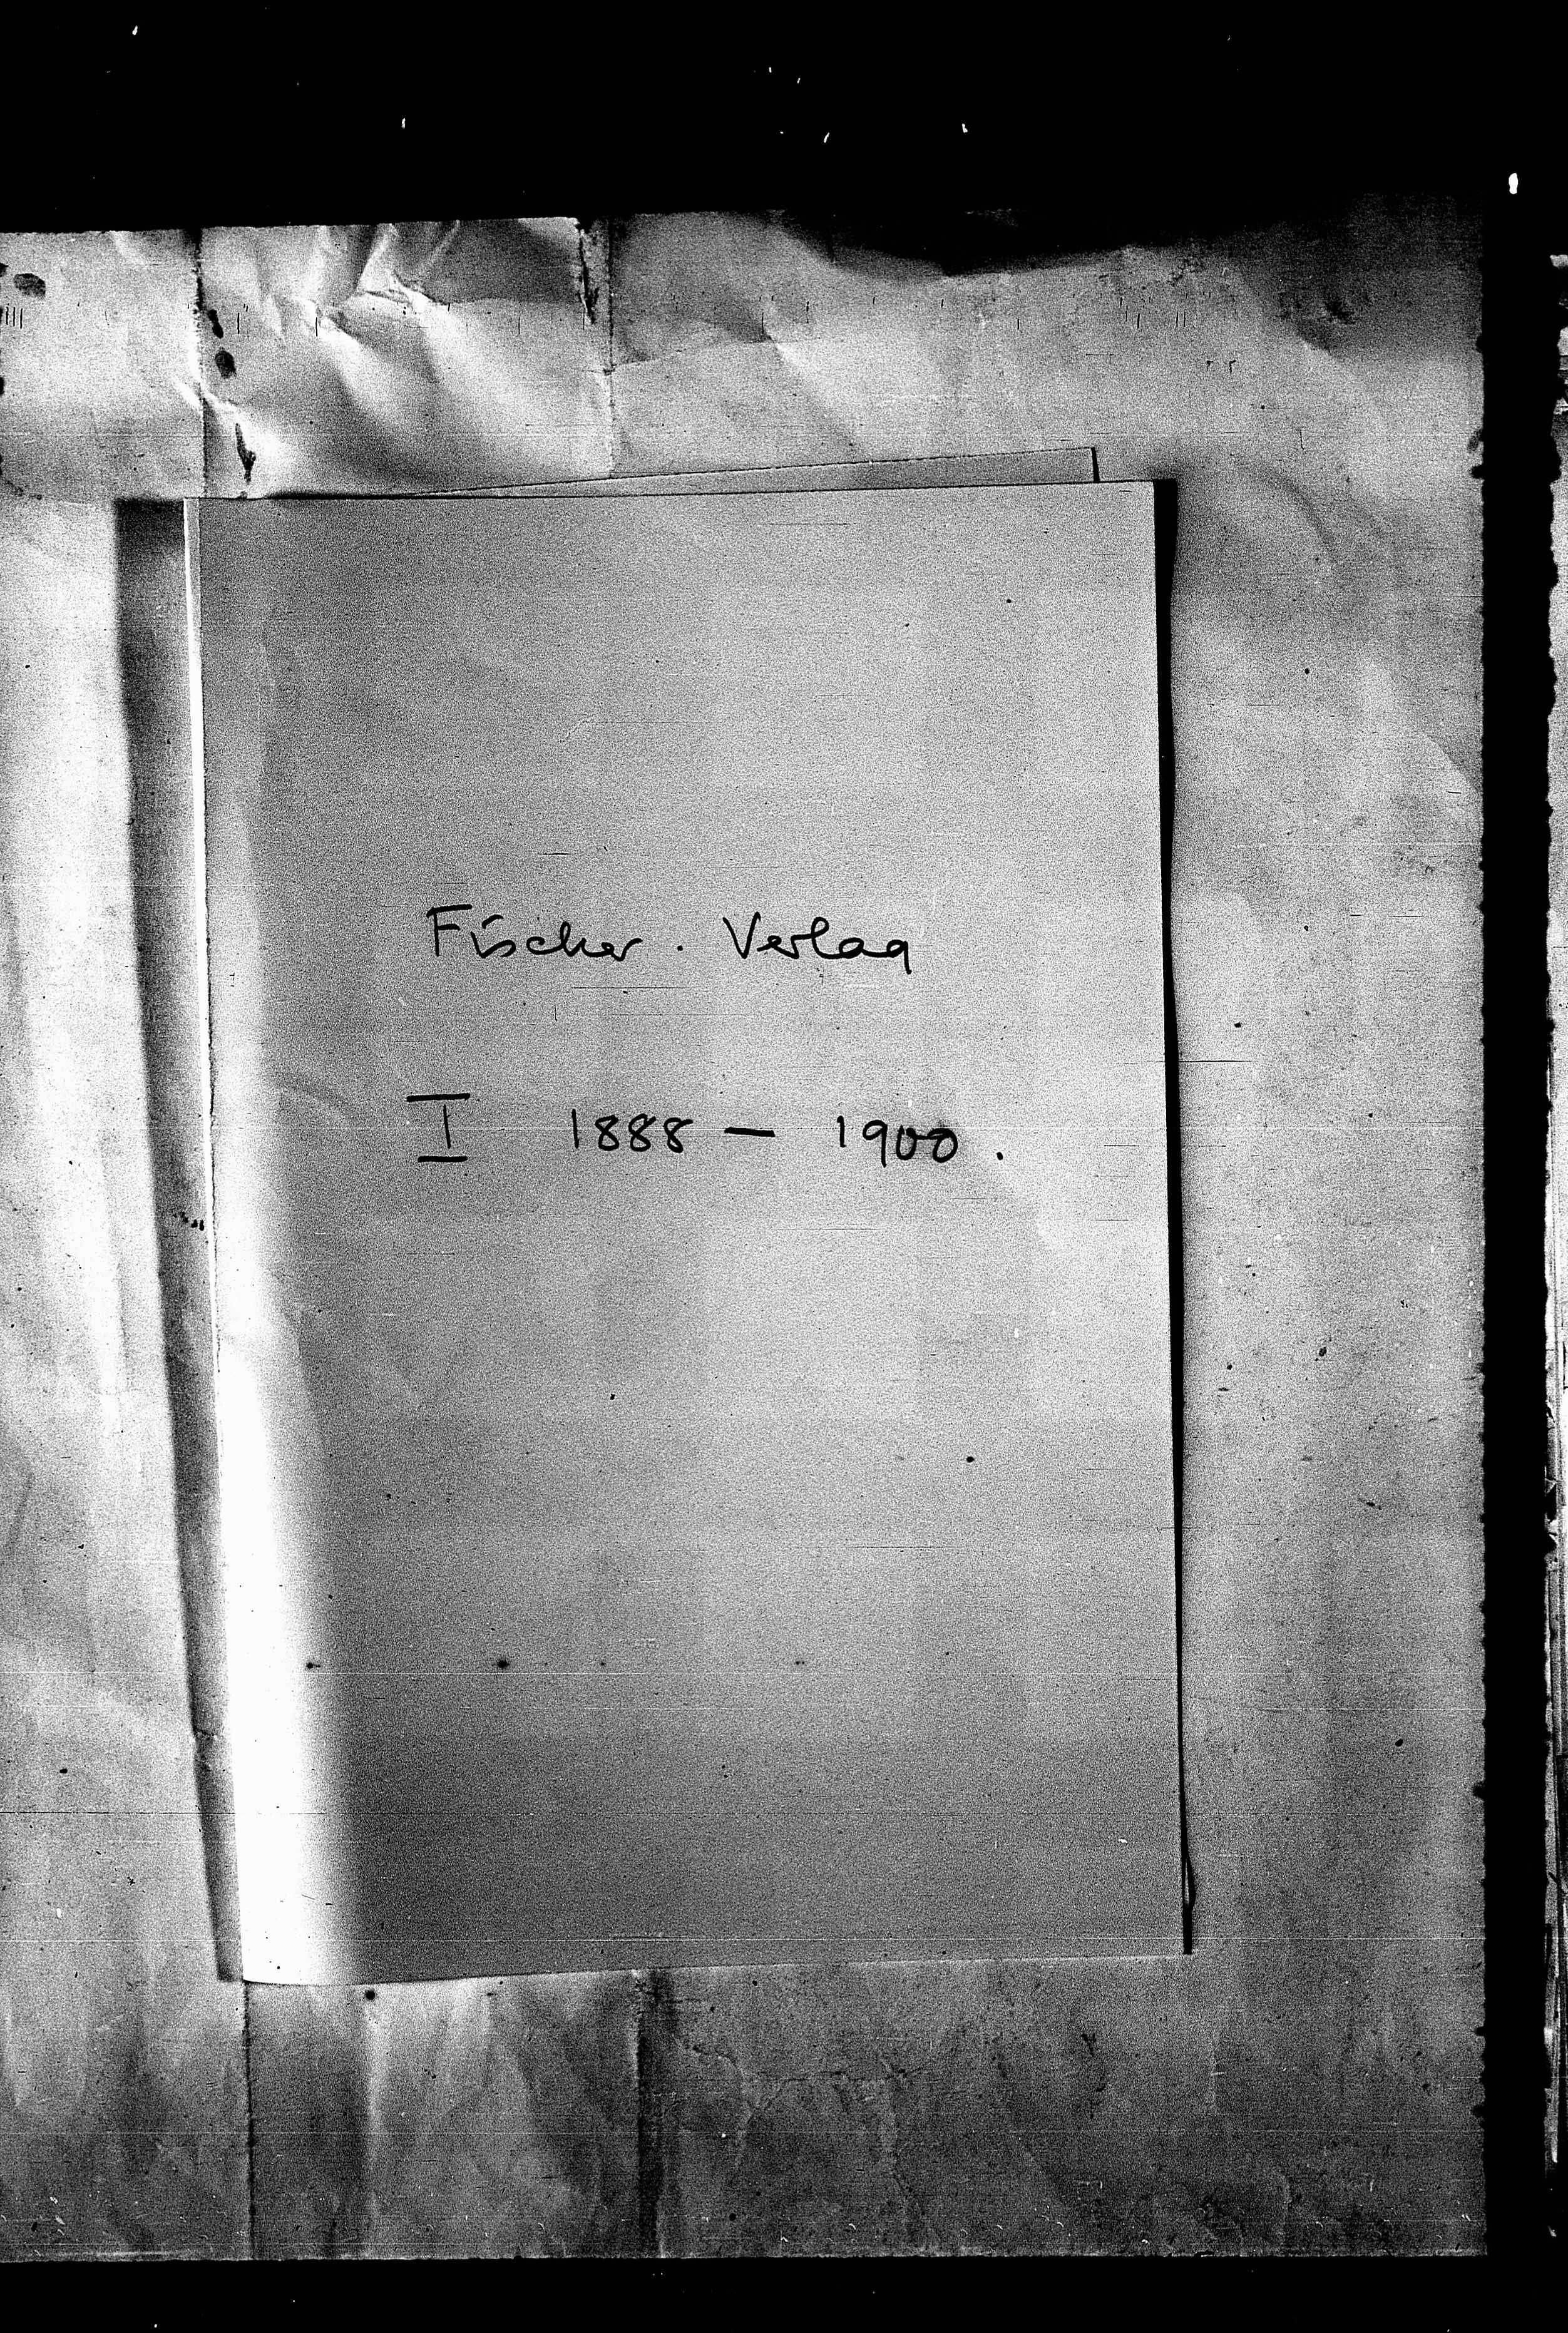 Fischer. Verlag
I 1888 — 1900.